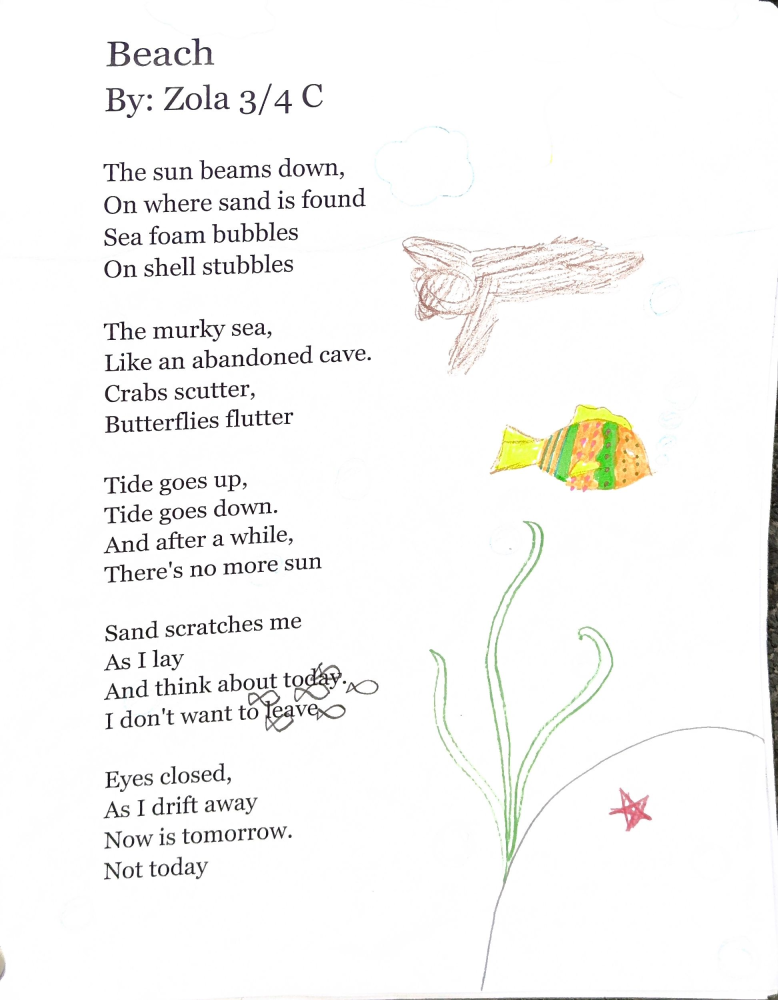 Beach
By: Zola 3/4 C
The sun beams down,
On where sand is found
Sea foam bubbles
On shell stubbles
The murky sea,
Like an abandoned cave.
Crabs scutter,
Butterflies flutter
Tide goes up,
Tide goes down.
And after a while,
There's no more sun
Sand scratches me
As I lay
And think about today.
I don't want to leave
Eyes closed,
As I drift away
Now is tomorrow.
Not today